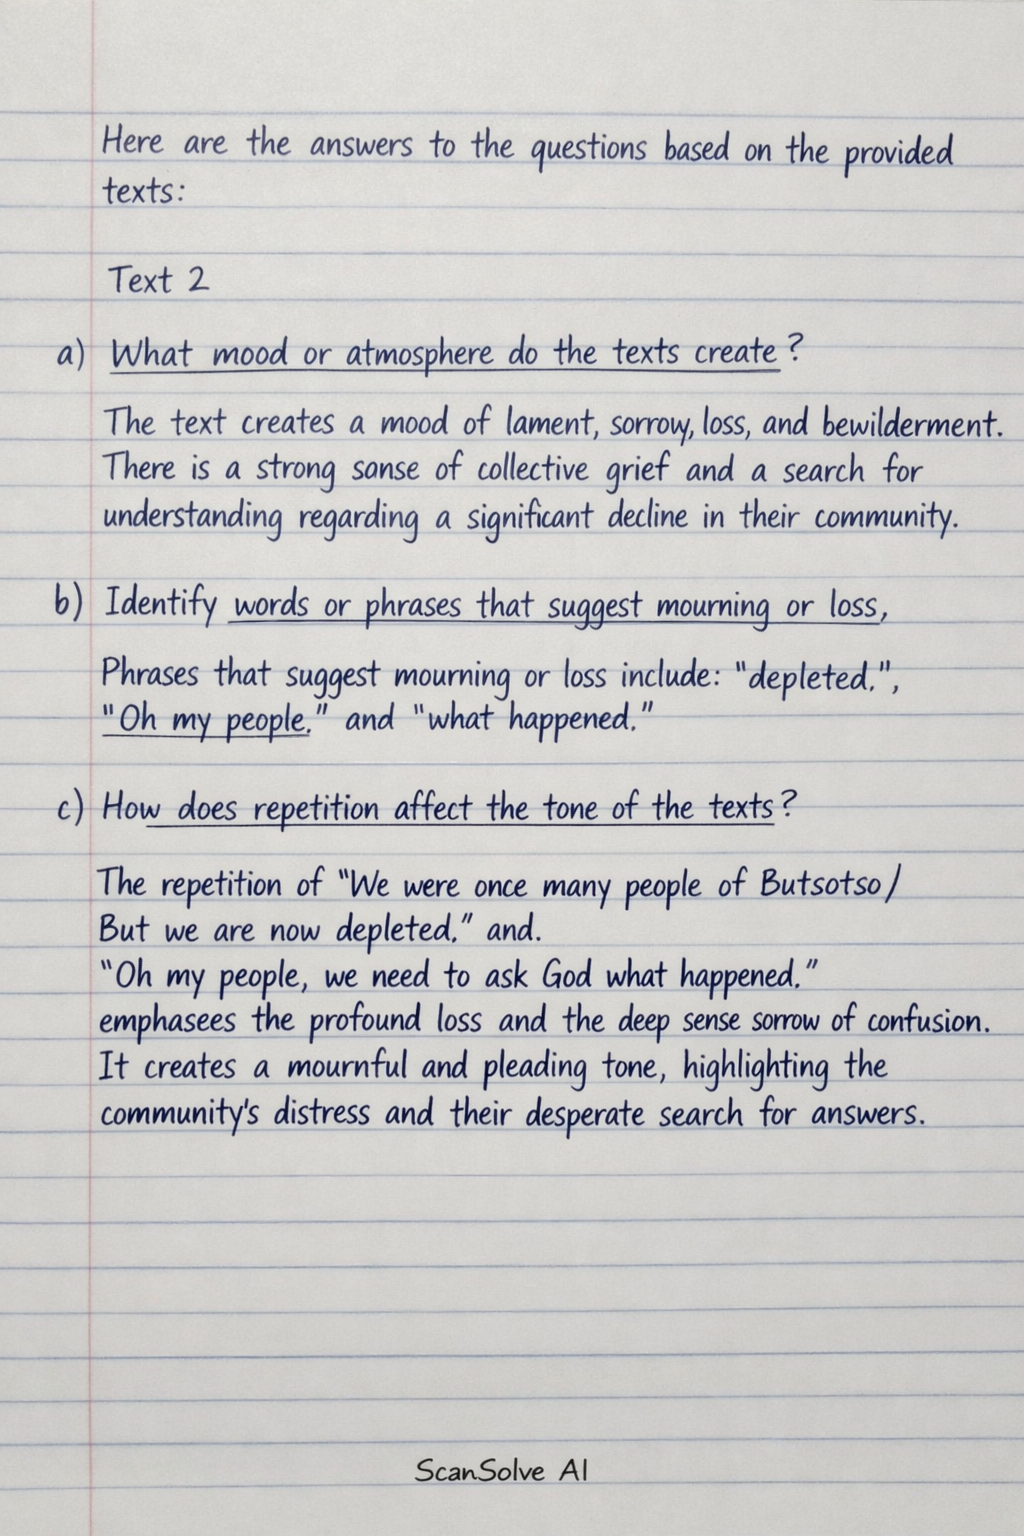 Here are the answers to the questions based on the provided
texts:
Text 2
a) What mood or atmosphere do the texts create?
The text creates a mood of lament, sorrow, loss, and bewilderment.
There is a strong sanse of collective grief and a search for
understanding regarding a significant decline in their community.
b) Identify words or phrases that suggest mourning or loss,
Phrases that suggest mourning or loss include: "depleted.",
"Oh my people." and "what happened."
c) How does repetition affect the tone of the texts?
The repetition of "We were once many people of Butsotso/
But we are now depleted." and.
"Oh my people, we need to ask God what happened."
emphasees the profound loss and the deep sense sorrow of confusion.
It creates a mournful and pleading tone, highlighting the
community's distress and their desperate search for answers.
ScanSolve AI